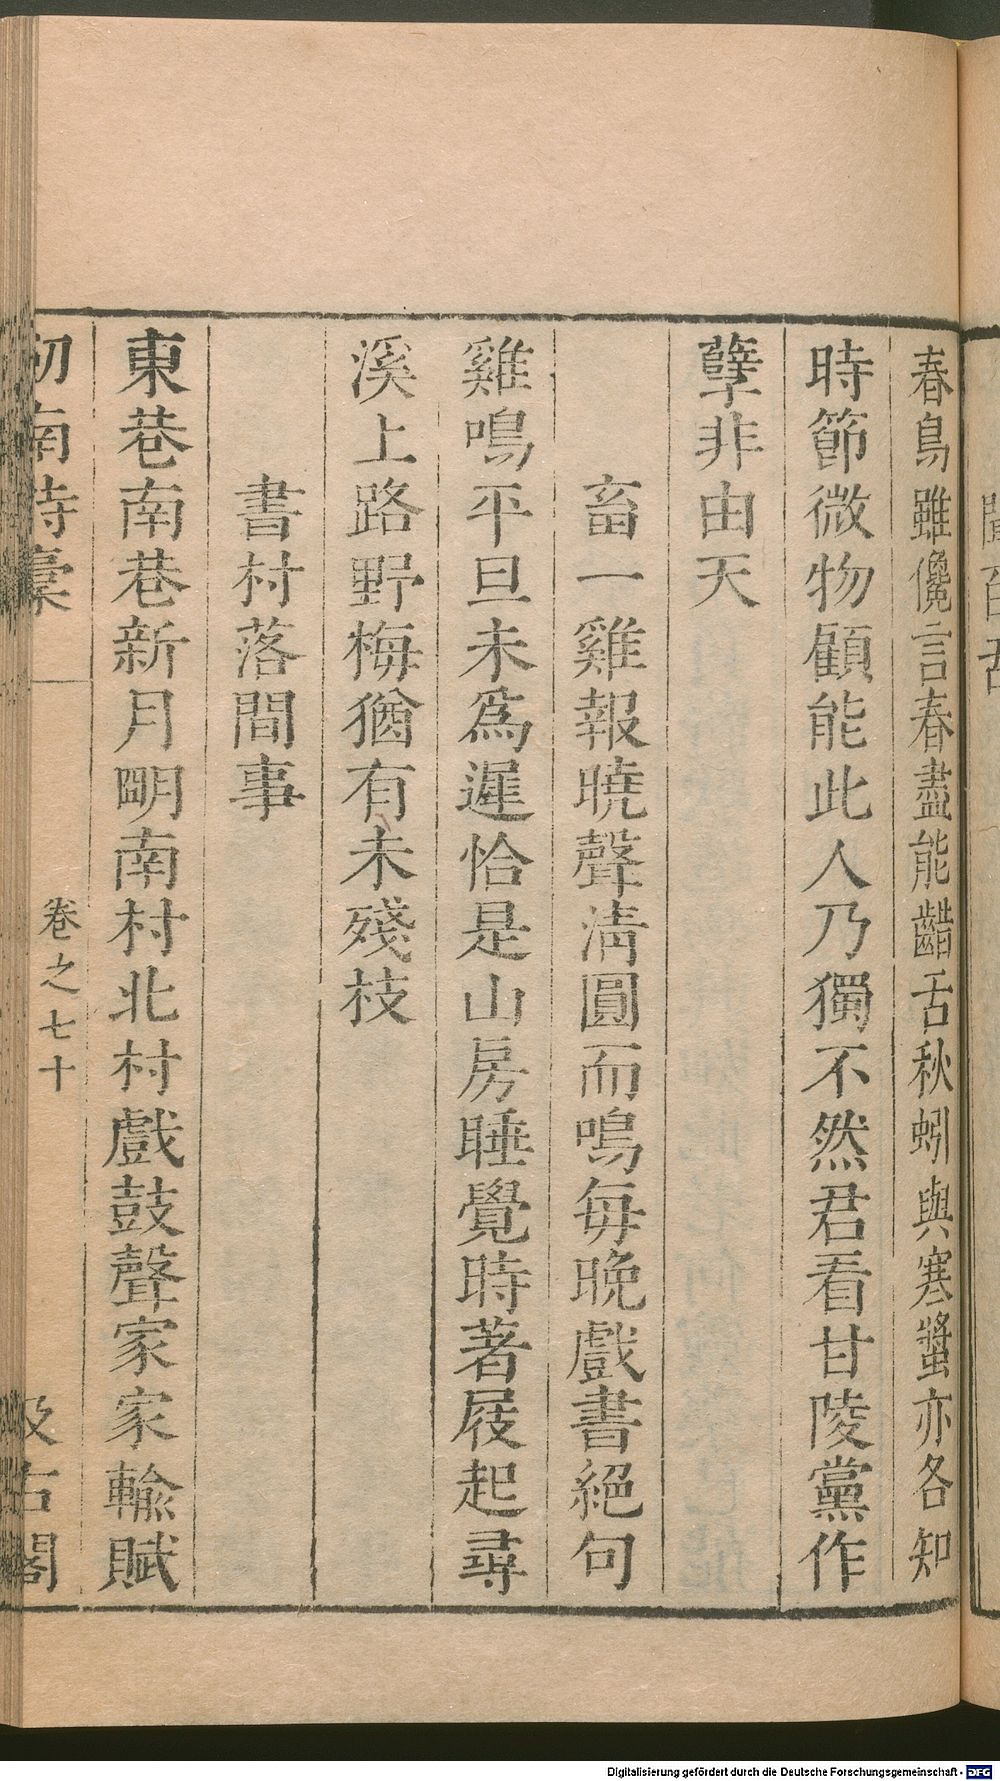 春鳥雖儳言春盡能齰舌秋蚓與寒螿亦各知
時節微物顧能此人乃獨不然君看甘陵黨作
孽非由天
畜一雞報曉聲淸圓而鳴每晚戲書絕句
雞鳴平旦未爲遲恰是山房睡覺時著屐起尋
溪上路野梅猶有未殘枝
書村落間事
東巷南巷新月朙南村北村戲鼓聲家家輸賦
南詩稾
卷之七十
古閣
Digitalisierung gefördert durch die Deutsche Forschungsgemeinschaft - DFG